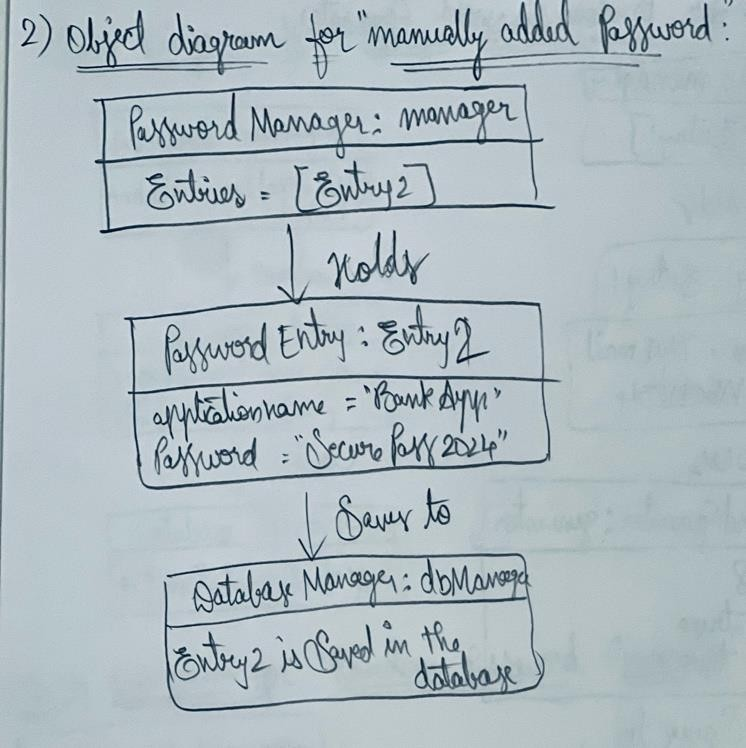 2) Object diagram for "manually added Password:"
Password Manager: manager
Entries = [Entry2]
Holds
Password Entry: Entry2
applicationname = "Bank App"
Password = "Secure Pass 2024"
Saves to
Database Manager: dbManager
Entry2 is Saved in the
database